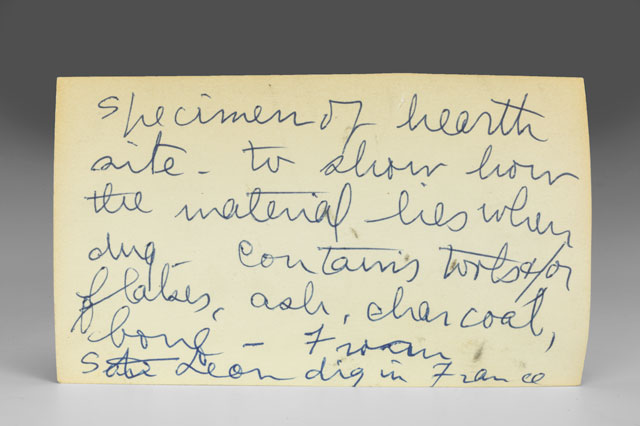 specimen of hearth
site - to show how
the material lies when
dug - contains tools &/or
flakes, ash, charcoal,
bone - From
Leon dig in France